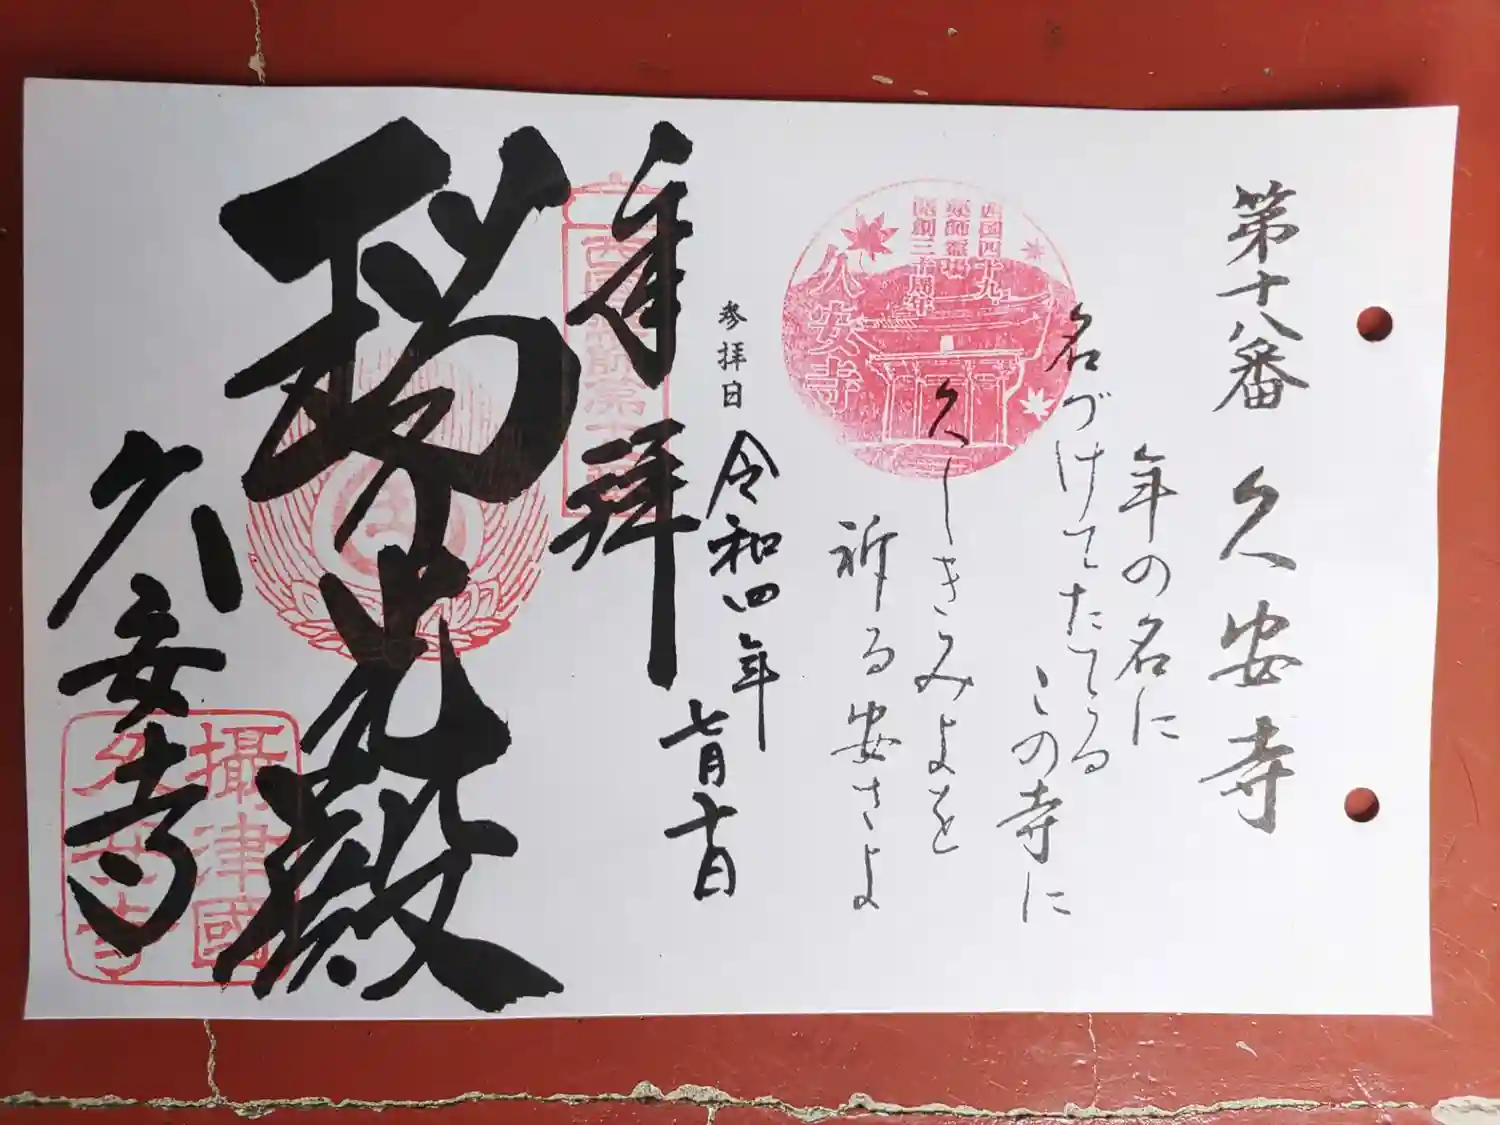 第十八番 久安寺
年の名に
名づけてたてる
この寺に
久しききみよを
祈る安さよ
西国四十九
薬師霊場
開創三十周年
久安寺
参拝日 令和四年 七月十日
奉拝
瑠光殿
久安寺
攝津國
久安寺